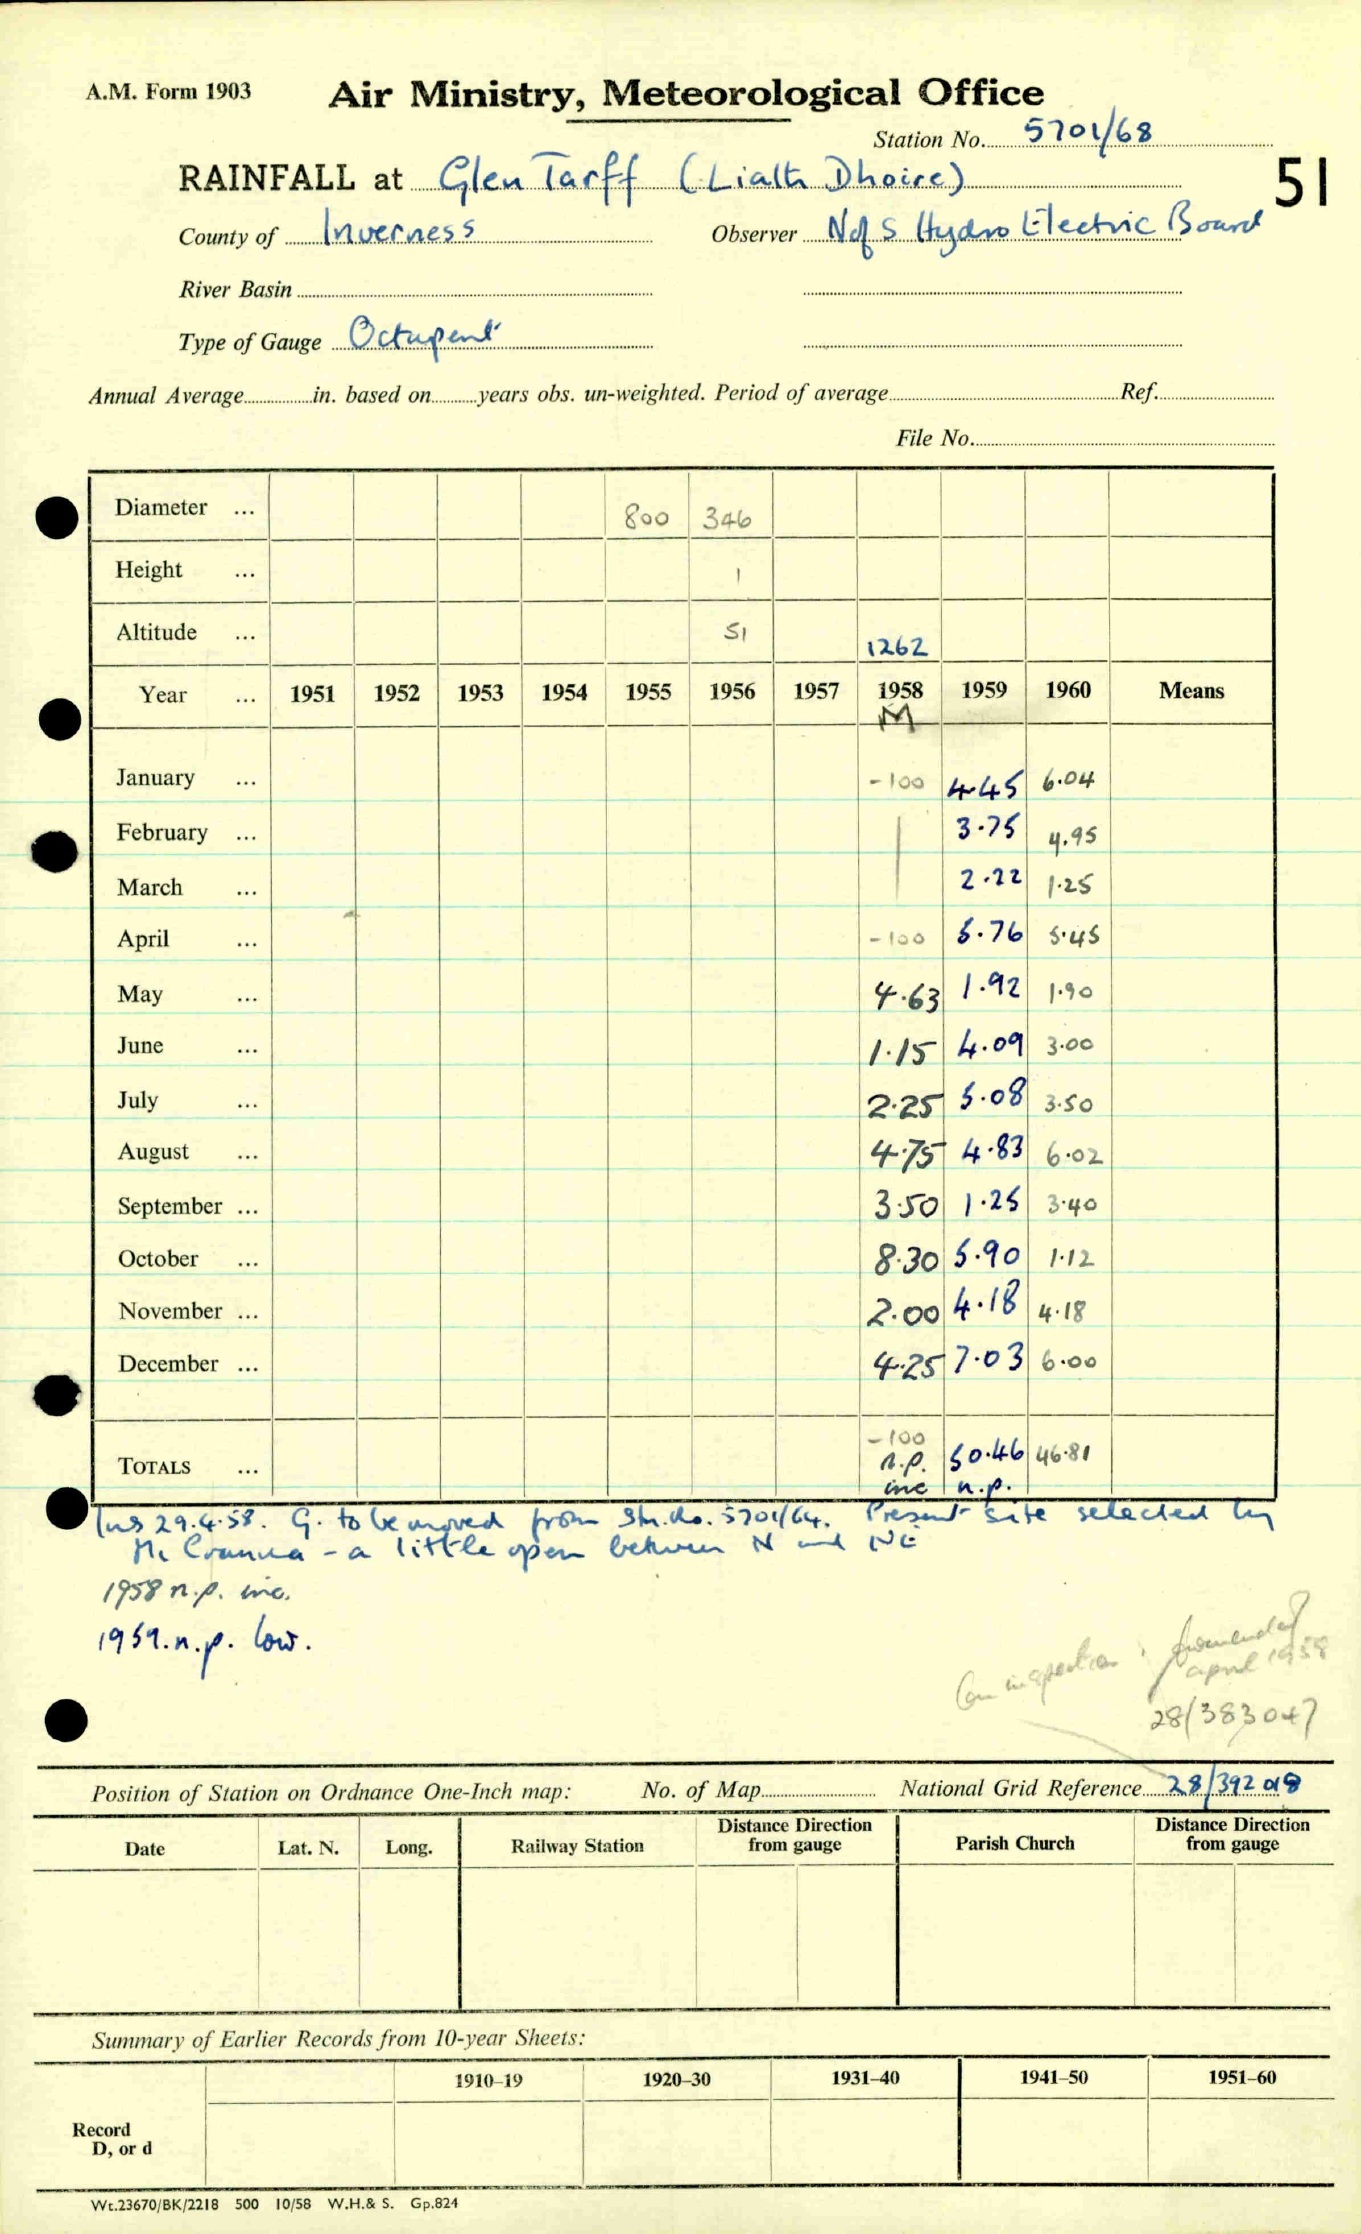 A.M. Form 1903 Air Ministry, Meteorological Office
Station No. 5701/68
RAINFALL at Glen Tarff (Lialth Dhoire) 51
County of Inverness Observer N of S Hydro Electric Board
River Basin
Type of Gauge Octapent
Annual Average in. based on years obs. un-weighted. Period of average Ref.
File No.
Diameter ... 800 346
Height ... 1
Altitude ... 51 1262
Year ... 1951 1952 1953 1954 1955 1956 1957 1958 1959 1960 Means
M
January ... -100 4.45 6.04
February ... 3.75 4.95
March ... 2.22 1.25
April ... -100 5.76 5.45
May ... 4.63 1.92 1.90
June ... 1.15 4.09 3.00
July ... 2.25 5.08 3.50
August ... 4.75 4.83 6.02
September ... 3.50 1.25 3.40
October ... 8.30 5.90 1.12
November ... 2.00 4.18 4.18
December ... 4.25 7.03 6.00
-100
TOTALS ... n.p. 50.46 46.81
inc n.p.
Ins 29.4.58. G. to be moved from Stn. No. 5701/64. Present site selected by
- a little open between N and NE
1958 n.p. inc.
1959. n.p. low.
inspection
april 1958
28/383047
Position of Station on Ordnance One-Inch map: No. of Map National Grid Reference 28/392018
Date Lat. N. Long. Railway Station Distance Direction from gauge Parish Church Distance Direction from gauge
Summary of Earlier Records from 10-year Sheets:
1910–19 1920–30 1931–40 1941–50 1951–60
Record
D, or d
Wt.23670/BK/2218 500 10/58 W.H.& S. Gp.824